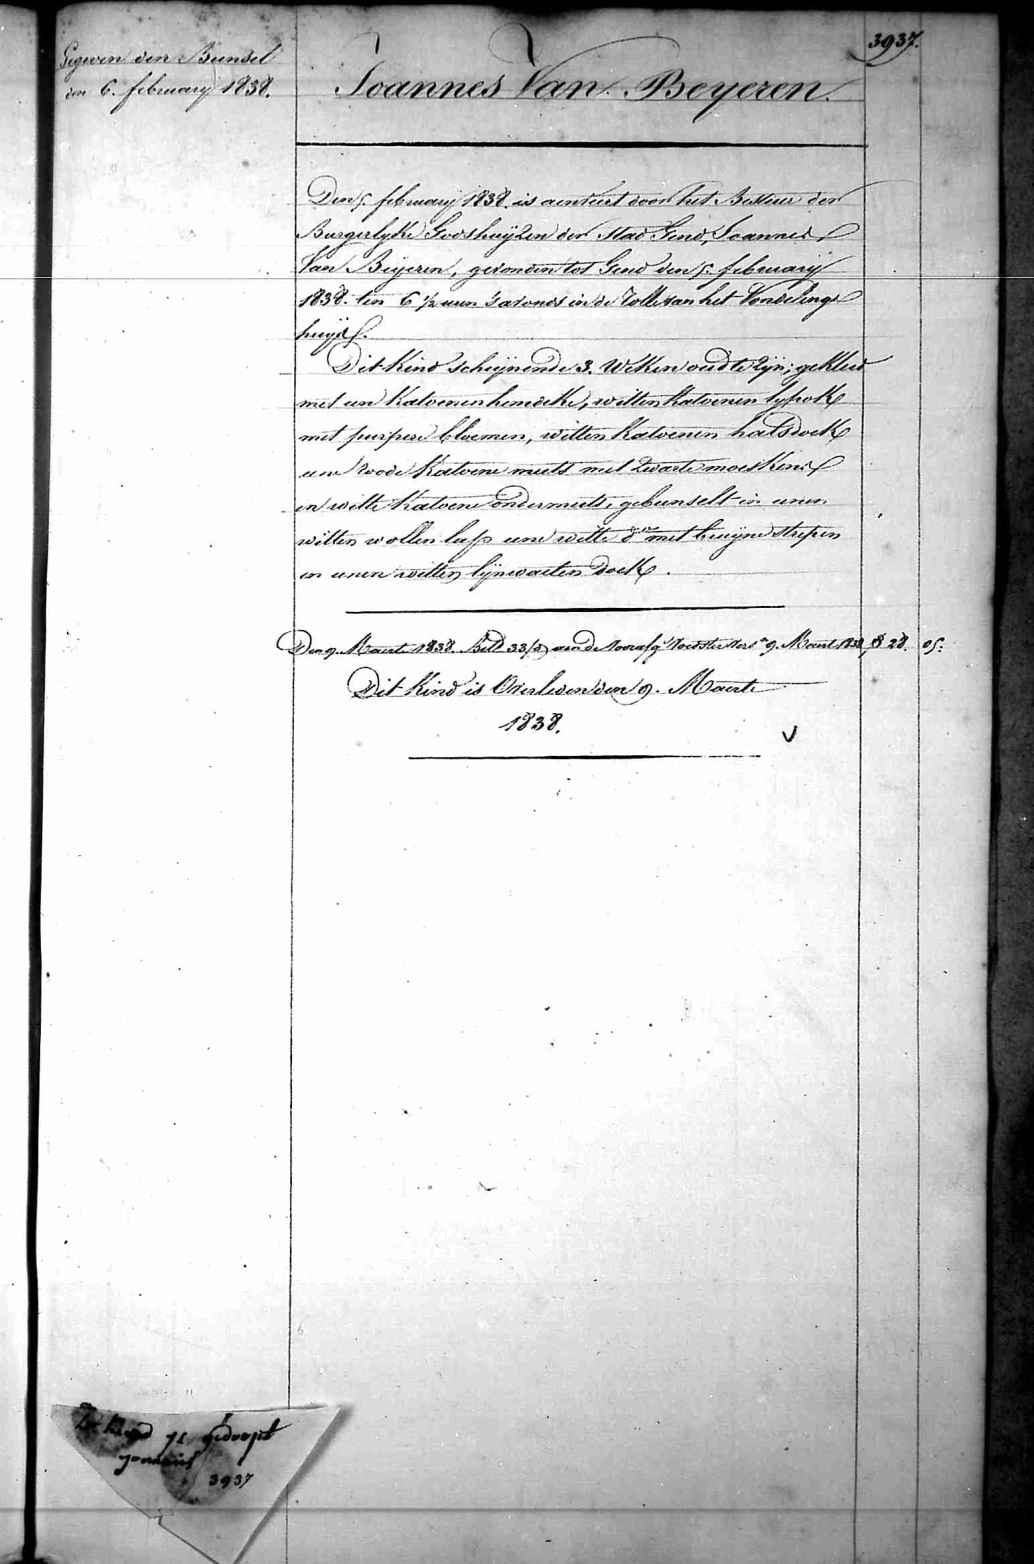 3937.
Gegeven den Bunsel
den 6. february 1838.
Joannes Van Beyeren.
Den 5. february 1838. is aenveert door het Bestuer der
Burgerlyke Godshuyzen der Stad Gend, Joannes
Van Beyeren, gevonden tot Gend den 5. february
1838. ten 6 ½ uren s'avonds in de Rolle van het Vondelinge
huys.
Dit Kind schynende 3. Weken oud te zyn; gekleed
met een Katoenen hemdeke, witten Katoenen lyfrok
met purpere bloemen, witten Katoenen halsdoek
eene roode Katoene muts met zwarte moeskens
en witte Katoene ondermuts, gebunselt in eenen
witten wollen lap eene witte do met bruyne strepen
en eenen witten lynwaeten doek.
Den 9. Maerte 1838. Beld 33/d aen de voorsg Voedsters 9. Maerte 1838 28. 05:
Dit Kind is Overleden den 9. Maerte
1838.
Kind is Gedoopt
Joannes
3937